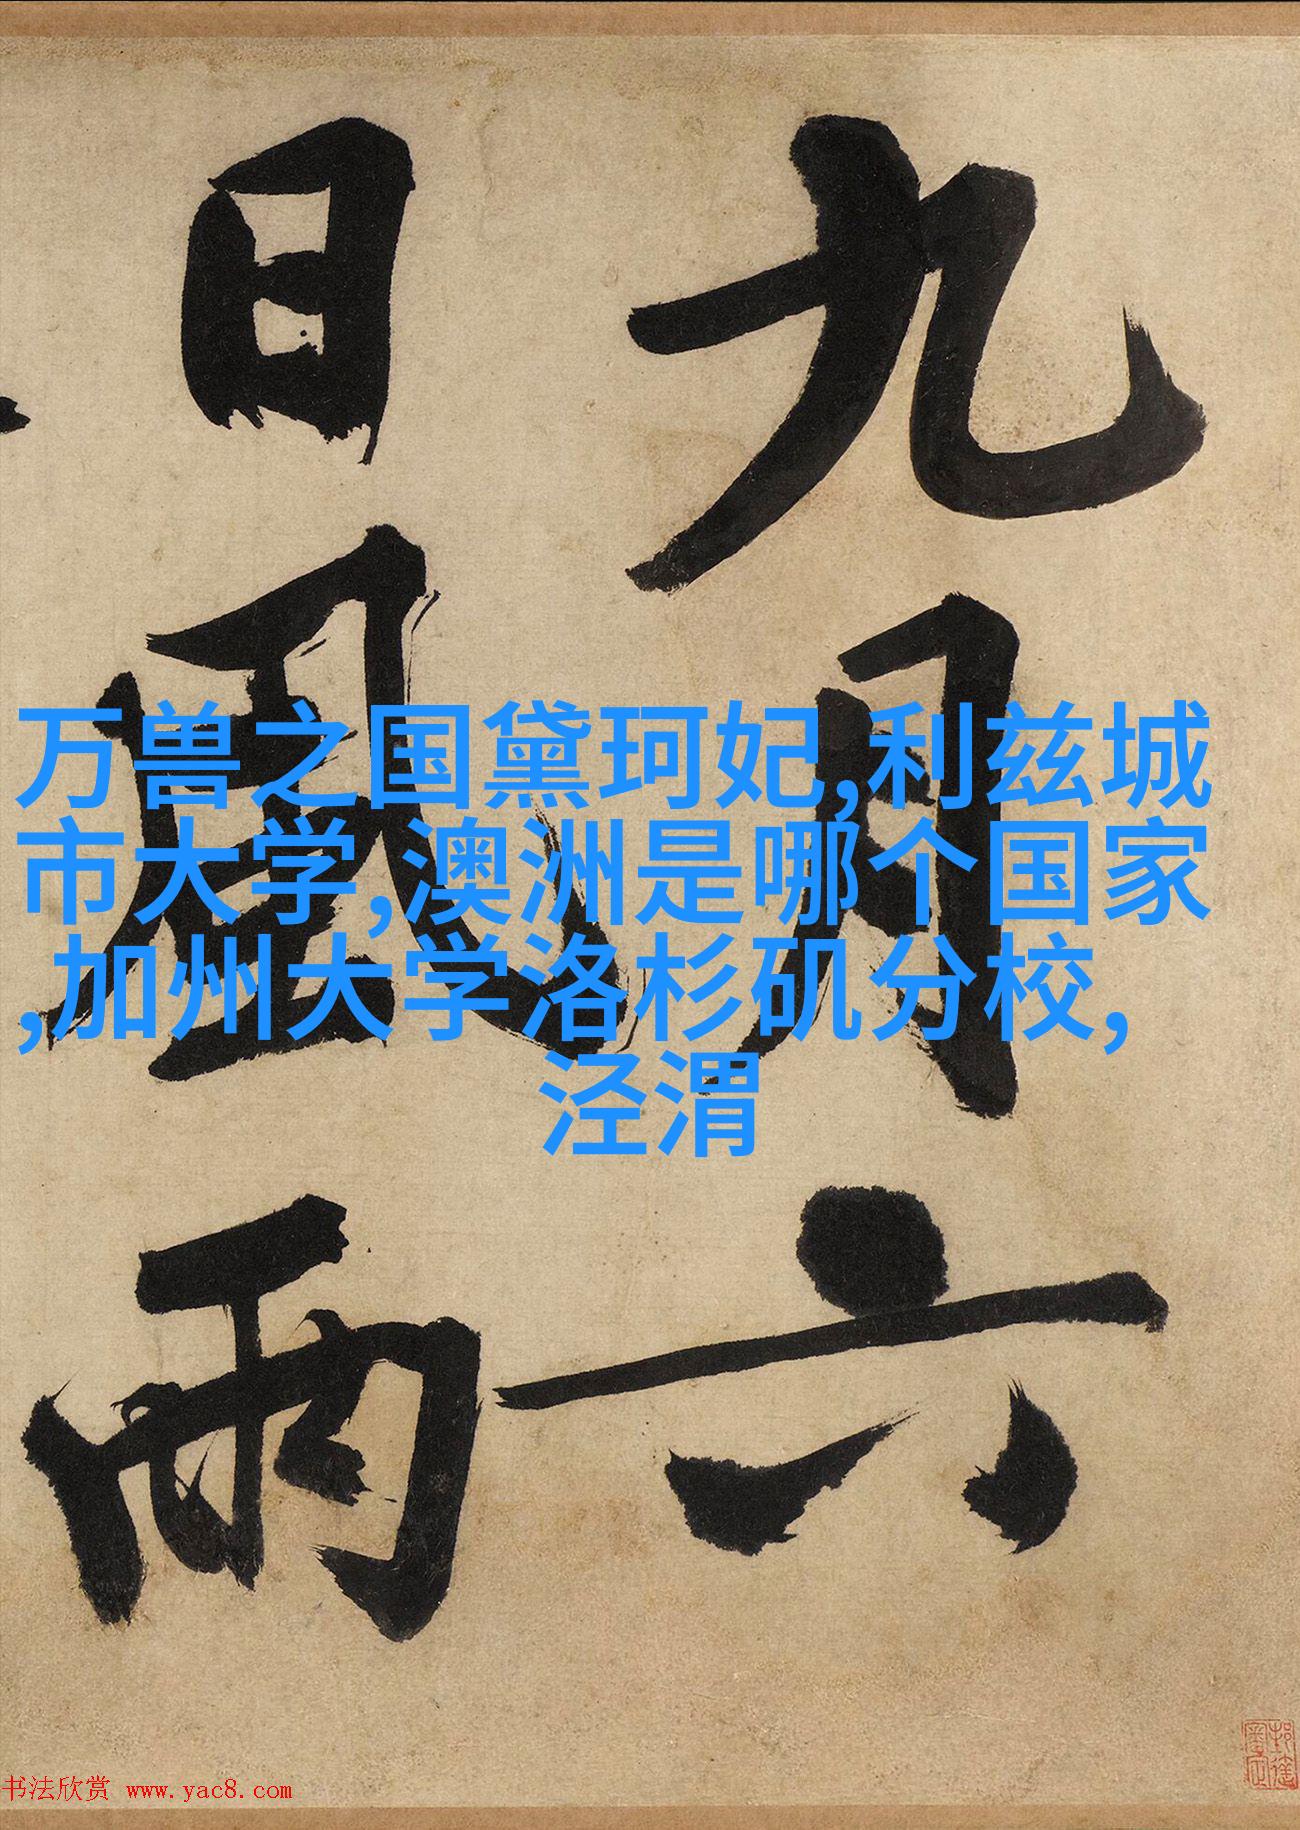 九月六
日風雨
万兽之国黛珂妃,利兹城
市大学,澳洲是哪个国家
,加州大学洛杉矶分校,
泾渭
书法欣赏 www.yac8.com